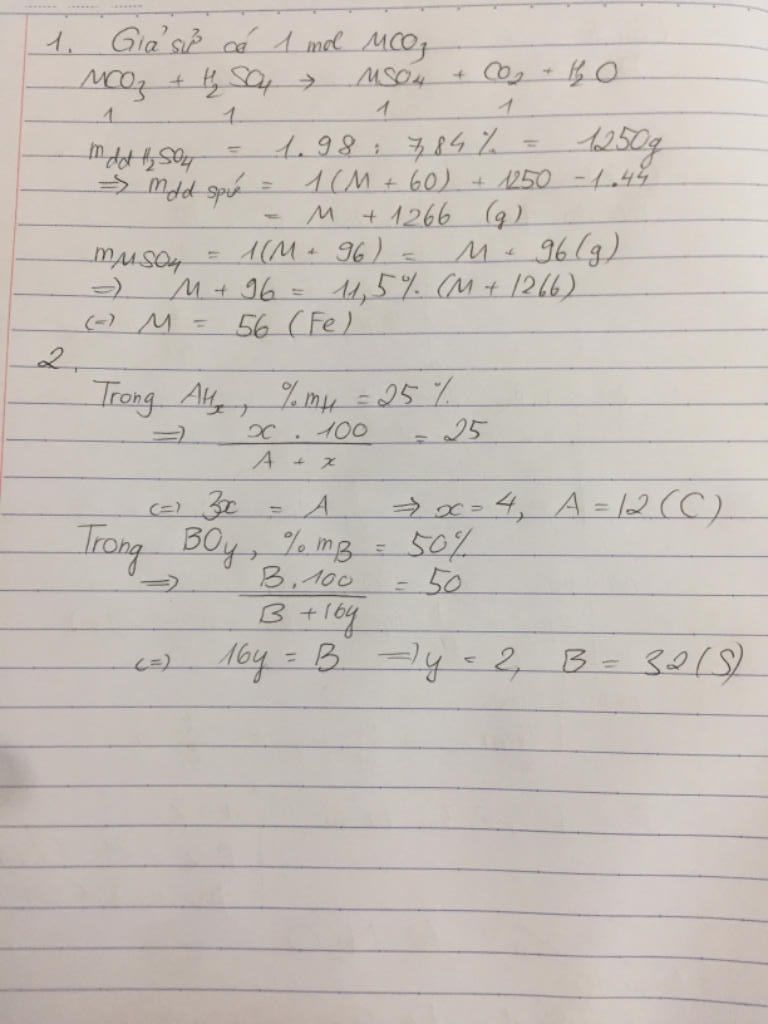 1. Giả sử có 1 mol MCO3
MCO3 + H2SO4 → MSO4 + CO2 + H2O
1 1 1 1
mdd H2SO4 = 1.98 : 7,84% = 1250g
=> mdd spứ = 1(M + 60) + 1250 - 1.44
= M + 1266 (g)
mMSO4 = 1(M + 96) = M + 96(g)
=> M + 96 = 11,5% (M + 1266)
(=) M = 56 (Fe)
2.
Trong AHx, %mH = 25%
=> x . 100 / A + x = 25
(=) 3x = A => x = 4, A = 12 (C)
Trong BOy, %mB = 50%
=> B.100 / B + 16y = 50
(=) 16y = B => y = 2, B = 32 (S)